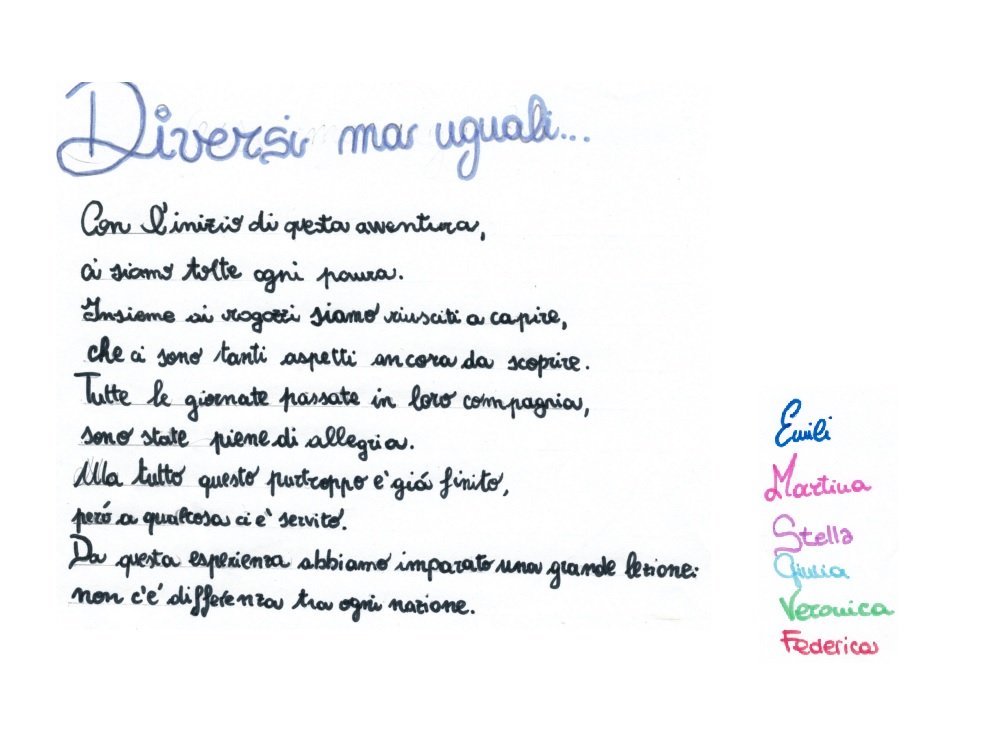 Diversi ma uguali...
Con l'inizio di questa avventura,
ci siamo tolte ogni paura.
Insieme ai ragazzi siamo riusciti a capire,
che ci sono tanti aspetti ancora da scoprire.
Tutte le giornate passate in loro compagnia,
sono state piene di allegria.
Ma tutto questo purtroppo e' giá finito,
peró a qualcosa ci e' servito.
Da questa esperienza abbiamo imparato una grande lezione:
non c'e' differenza tra ogni nazione.
Emili
Martina
Stella
Giulia
Veronica
Federica